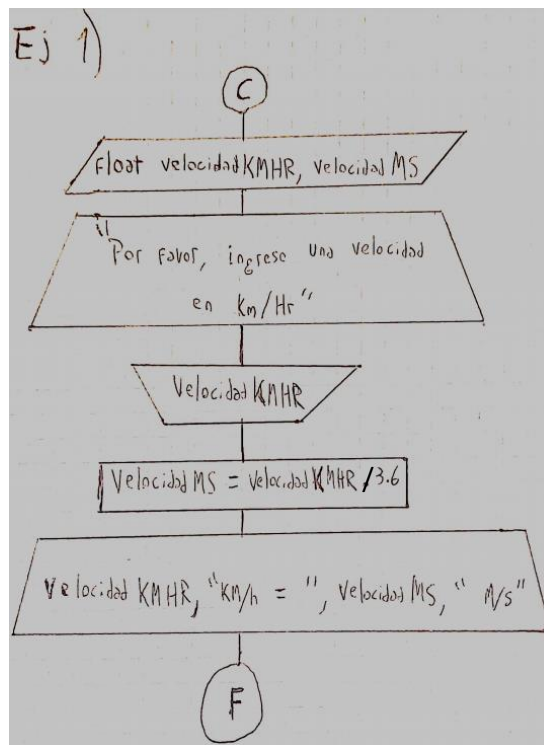 Ej 1)
C
float velocidadKMHR, velocidadMS
"Por favor, ingrese una velocidad
en Km/Hr"
VelocidadKMHR
VelocidadMS = velocidadKMHR/3.6
Velocidad KMHR, "KM/h = ", velocidad MS, " M/S"
F